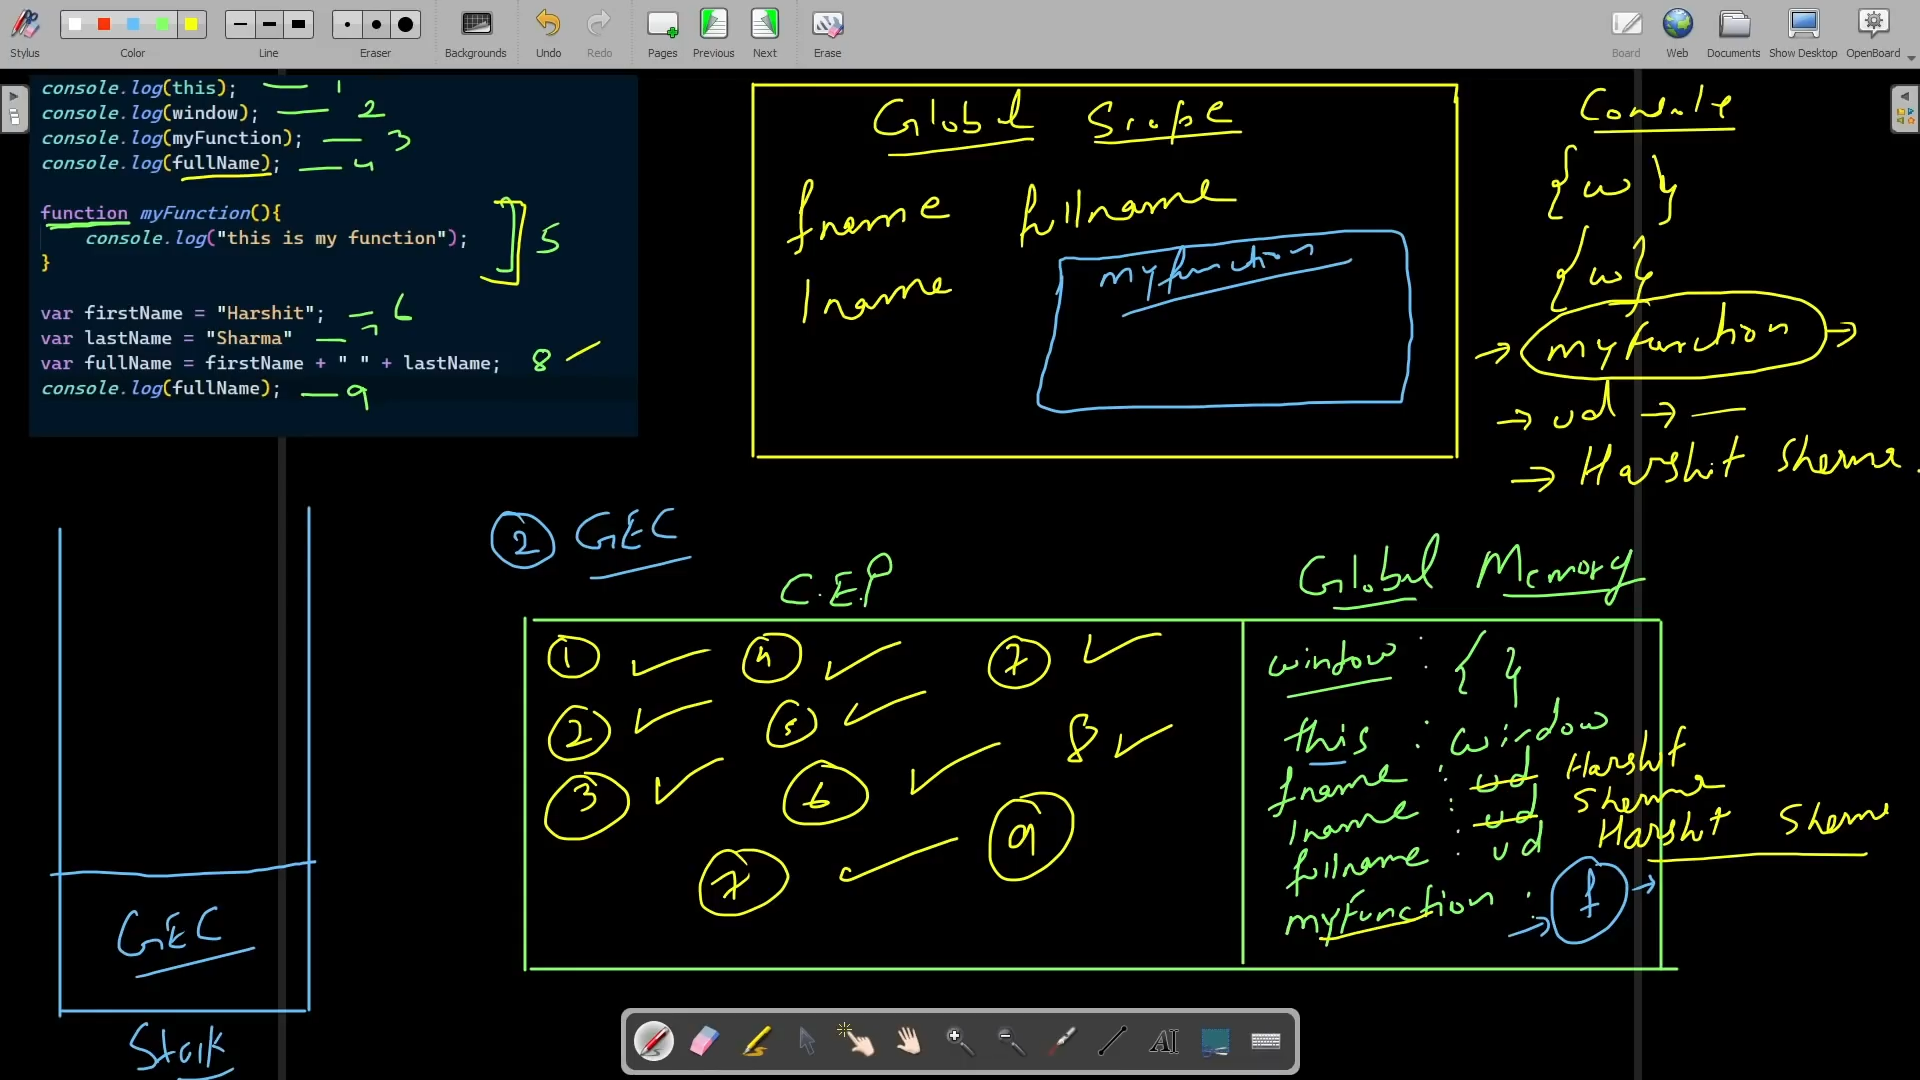 Stylus Color Line Eraser Backgrounds Undo Redo Pages Previous Next Erase Board Web Documents Show Desktop OpenBoard
console.log(this); — 1
console.log(window); — 2
console.log(myFunction); — 3
console.log(fullName); — 4
function myFunction(){
console.log("this is my function");
} 5
var firstName = "Harshit"; — 6
var lastName = "Sharma" — 7
var fullName = firstName + " " + lastName; 8
console.log(fullName); — 9
Global Scope
fname fullname
lname
myfunction
Console
{ w }
{ w }
→ myfunction →
→ ud → —
→ Harshit Sharma
2 GEC
C.E.P
1 4 7
2 5 8
3 6
7 9
Global Memory
window : { }
this : window
fname : ud Harshit
lname : ud Sharma
fullname : ud Harshit Sharma
myFunction : → f →
GEC
Stack
AI